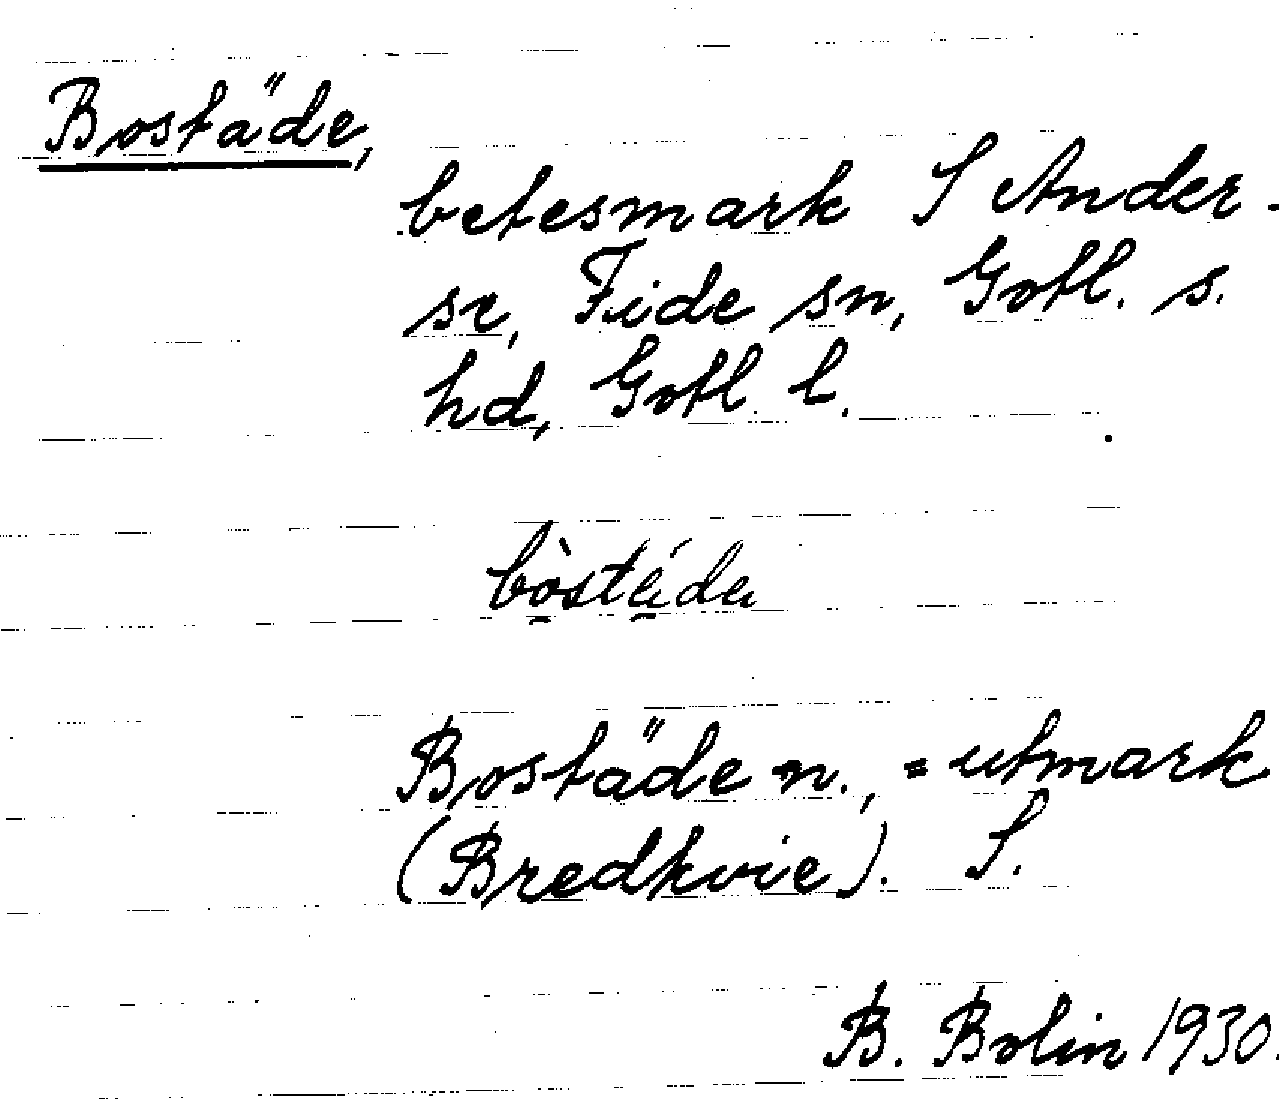 Bostäde,
betesmark S Ander-
se, Fide sn, Gotl. s.
hd, Gotl. l.
bòstáda
Bostäde n., = utmark
(Bredkvie). S.
B. Bolin 1930.